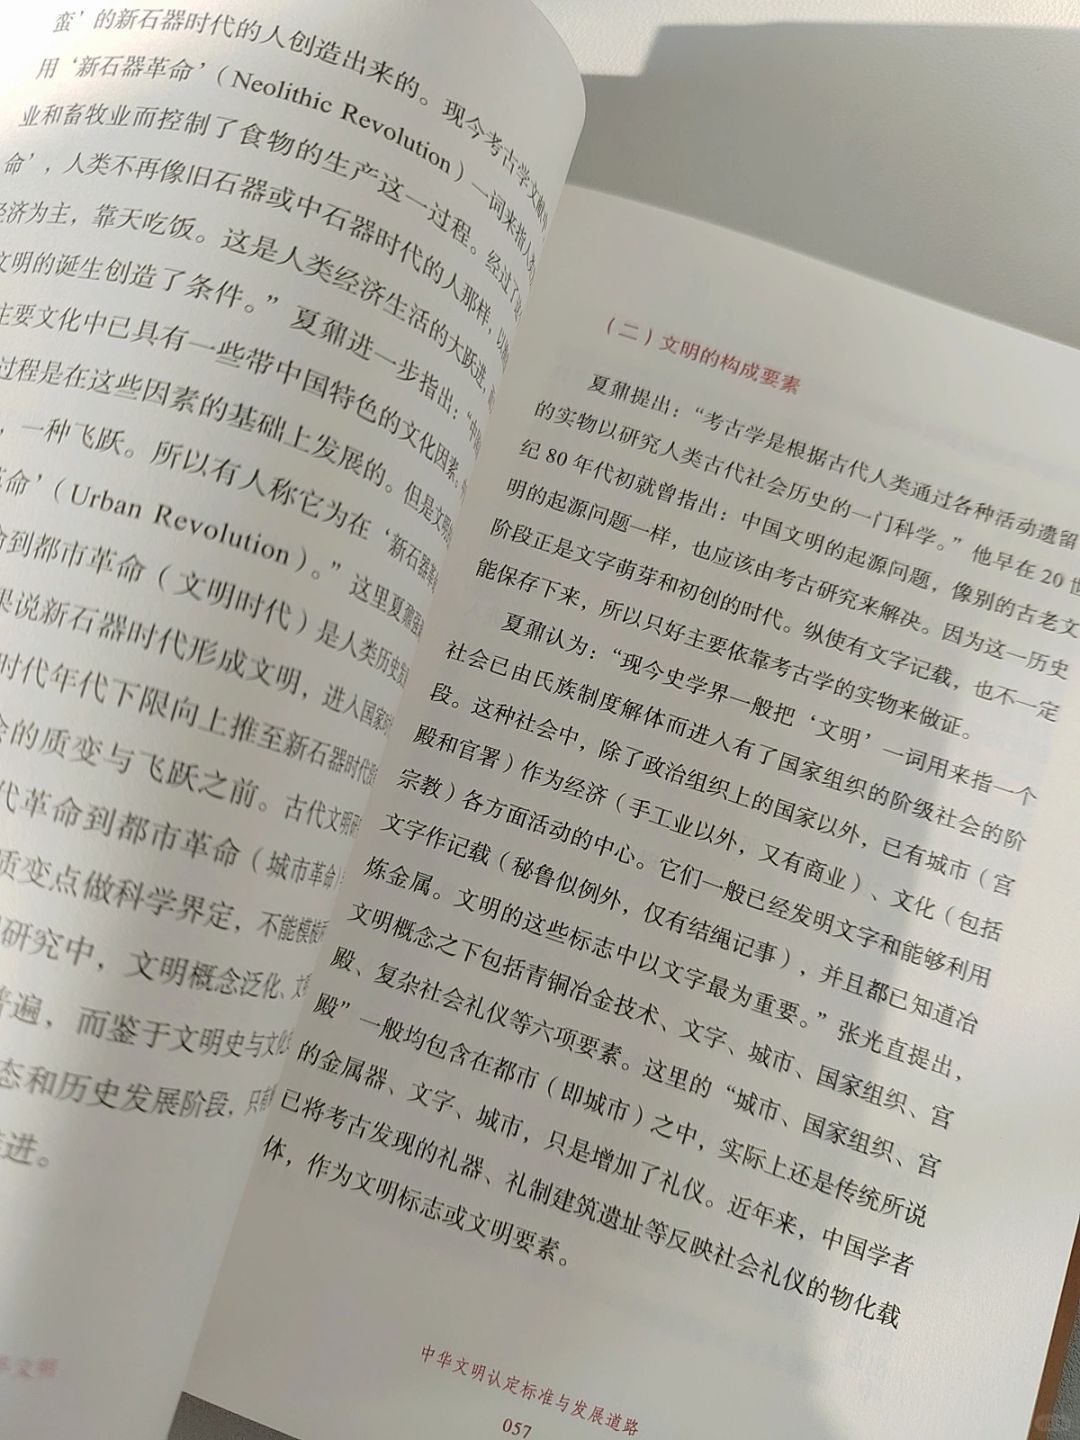 蛮’的新石器时代的人创造出来的。现今考古学文献中
用‘新石器革命’（Neolithic Revolution）一词来指人类
业和畜牧业而控制了食物的生产这一过程。经过了
命’，人类不再像旧石器或中石器时代的人那样，以
经济为主，靠天吃饭。这是人类经济生活的大跃进，
文明的诞生创造了条件。”夏鼐进一步指出：“中国
主要文化中已具有一些带中国特色的文化因素。
过程是在这些因素的基础上发展的。但是文明
，一种飞跃。所以有人称它为在‘新石器革
革命’（Urban Revolution）。”这里夏鼐强
到都市革命（文明时代）是人类历史
果说新石器时代形成文明，进入国家
时代年代下限向上推至新石器时代
的质变与飞跃之前。古代文明研
代革命到都市革命（城市革命）
质变点做科学界定，不能模棱
研究中，文明概念泛化、
普遍，而鉴于文明史与文化
态和历史发展阶段，只有
进。
（二）文明的构成要素
夏鼐提出：“考古学是根据古代人类通过各种活动遗留
的实物以研究人类古代社会历史的一门科学。”他早在20世
纪80年代初就曾指出：中国文明的起源问题，像别的古老文
明的起源问题一样，也应该由考古研究来解决。因为这一历史
阶段正是文字萌芽和初创的时代。纵使有文字记载，也不一定
能保存下来，所以只好主要依靠考古学的实物来做证。
夏鼐认为：“现今史学界一般把‘文明’一词用来指一个
社会已由氏族制度解体而进入有了国家组织的阶级社会的阶
段。这种社会中，除了政治组织上的国家以外，已有城市（宫
殿和官署）作为经济（手工业以外，又有商业）、文化（包括
宗教）各方面活动的中心。它们一般已经发明文字和能够利用
文字作记载（秘鲁似例外，仅有结绳记事），并且都已知道冶
炼金属。文明的这些标志中以文字最为重要。”张光直提出，
文明概念之下包括青铜冶金技术、文字、城市、国家组织、宫
殿、复杂社会礼仪等六项要素。这里的“城市、国家组织、宫
殿”一般均包含在都市（即城市）之中，实际上还是传统所说
的金属器、文字、城市，只是增加了礼仪。近年来，中国学者
已将考古发现的礼器、礼制建筑遗址等反映社会礼仪的物化载
体，作为文明标志或文明要素。
中华文明认定标准与发展道路
057